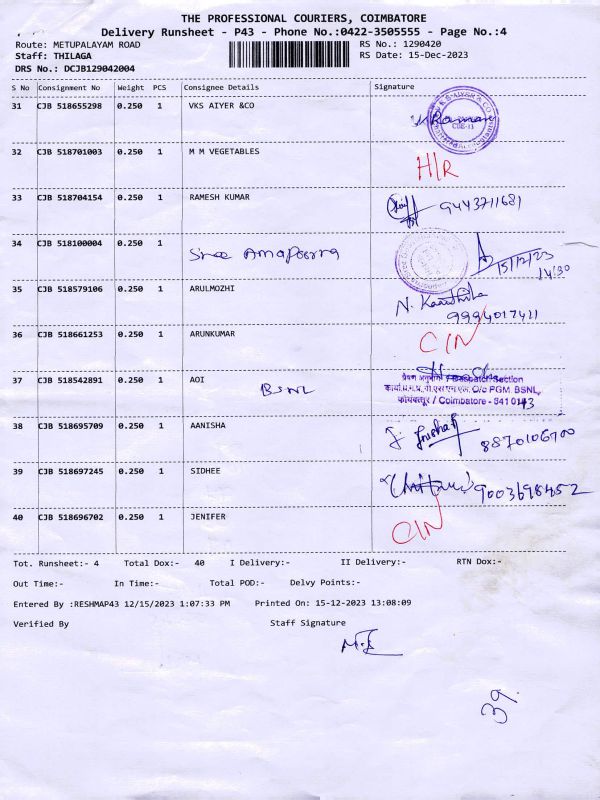 THE PROFESSIONAL COURIERS, COIMBATORE
Delivery Runsheet - P43 - Phone No.:0422-3505555 - Page No.:4
Route: METUPALAYAM ROAD RS No.: 1290420
Staff: THILAGA RS Date: 15-Dec-2023
DRS No.: DCJB129042004
S No Consignment No Weight PCS Consignee Details Signature
31 CJB 518655298 0.250 1 VKS AIYER &CO
32 CJB 518701003 0.250 1 M M VEGETABLES H/R
33 CJB 518704154 0.250 1 RAMESH KUMAR 9443711681
34 CJB 518100004 0.250 1 Sree Annapoorna 15/12/23
14:30
35 CJB 518579106 0.250 1 ARULMOZHI N.
9994017421
36 CJB 518661253 0.250 1 ARUNKUMAR C/N
37 CJB 518542891 0.250 1 AOI BSNL
प्रेषण अनुभाग / Despatch Section
O/o PGM BSNL,
कोयंबत्तूर / Coimbatore - 641 043
38 CJB 518695709 0.250 1 AANISHA 8870106700
39 CJB 518697245 0.250 1 SIDHEE 9003698452
40 CJB 518696702 0.250 1 JENIFER C/N
Tot. Runsheet:- 4 Total Dox:- 40 I Delivery:- II Delivery:- RTN Dox:-
Out Time:- In Time:- Total POD:- Delvy Points:-
Entered By :RESHMAP43 12/15/2023 1:07:33 PM Printed On: 15-12-2023 13:08:09
Verified By Staff Signature